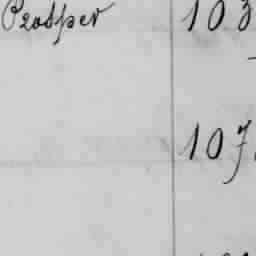 Prosper 103
107